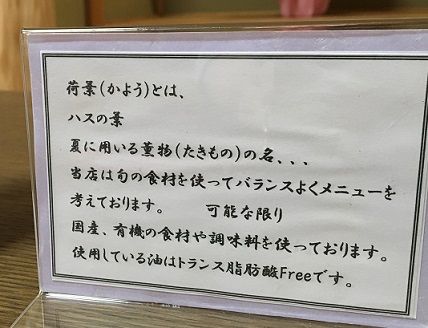 荷葉(かよう)とは、
ハスの葉
夏に用いる薫物(たきもの)の名、、、
当店は旬の食材を使ってバランスよくメニューを
考えております。 可能な限り
国産、有機の食材や調味料を使っております。
使用している油はトランス脂肪酸Freeです。